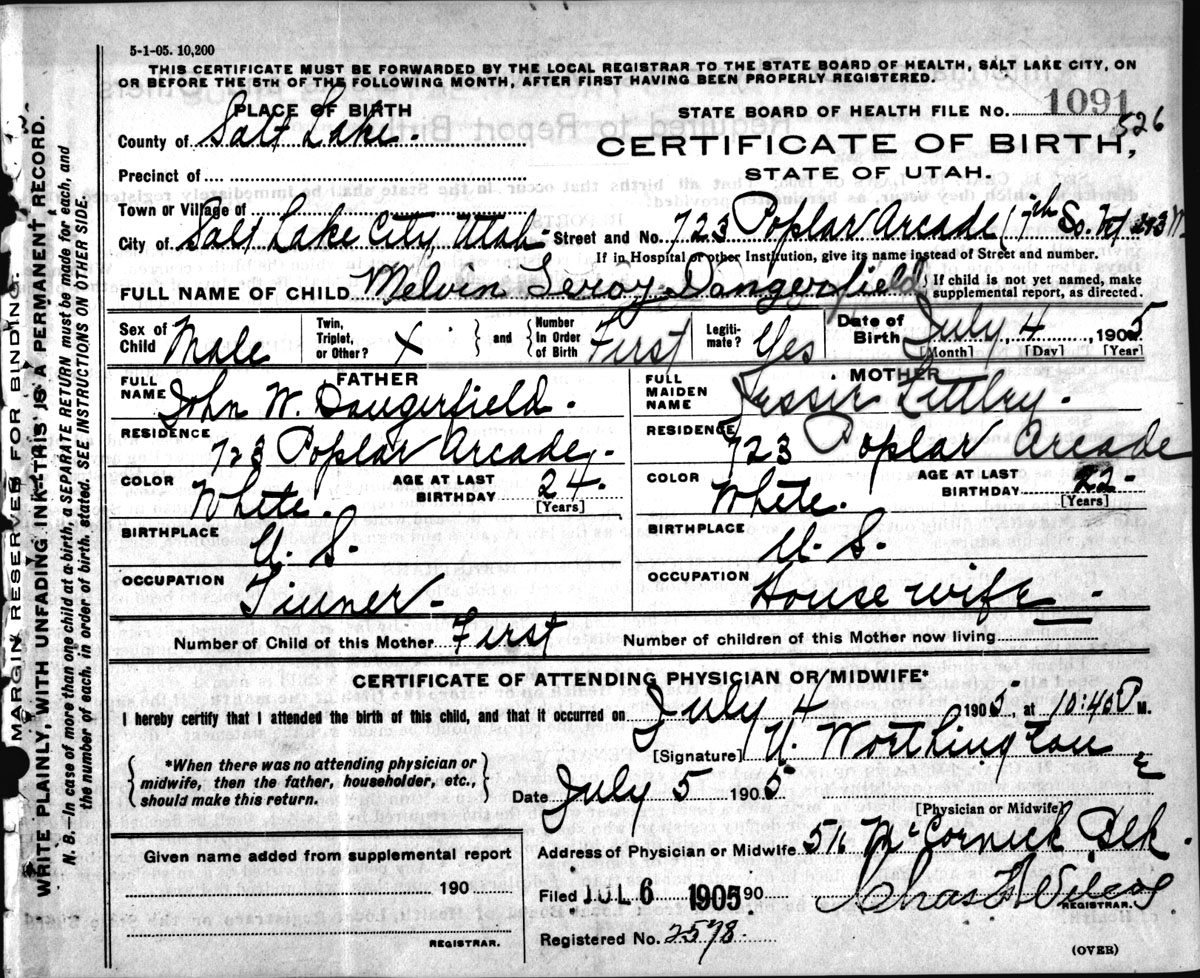 5-1-05. 10,200
THIS CERTIFICATE MUST BE FORWARDED BY THE LOCAL REGISTRAR TO THE STATE BOARD OF HEALTH, SALT LAKE CITY, ON
OR BEFORE THE 5TH OF THE FOLLOWING MONTH, AFTER FIRST HAVING BEEN PROPERLY REGISTERED.
PLACE OF BIRTH
STATE BOARD OF HEALTH FILE NO. 1091
526
County of Salt Lake.
CERTIFICATE OF BIRTH,
Precinct of
STATE OF UTAH.
Town or Village of
City of Salt Lake City Utah Street and No. 723 Poplar Arcade (7th So.
If in Hospital or other Institution, give its name instead of Street and number.
FULL NAME OF CHILD Melvin Leroy Dangerfield { If child is not yet named, make
supplemental report, as directed.
Sex of Child Male Twin, Triplet, or Other? X } and { Number In Order of Birth First Legitimate? Yes Date of Birth July 4 1905
[Month] [Day] [Year]
FATHER
MOTHER
FULL NAME John W. Dangerfield.
FULL MAIDEN NAME Lessie Littley.
RESIDENCE 723 Poplar Arcade.
RESIDENCE 723 Poplar Arcade
COLOR White. AGE AT LAST BIRTHDAY 24. [Years]
COLOR White. AGE AT LAST BIRTHDAY 22. [Years]
BIRTHPLACE U. S.
BIRTHPLACE U. S.
OCCUPATION Tinner-
OCCUPATION House wife -
Number of Child of this Mother First Number of children of this Mother now living
CERTIFICATE OF ATTENDING PHYSICIAN OR MIDWIFE*
I hereby certify that I attended the birth of this child, and that it occurred on July 4 1905, at 10:40 P M.
[Signature] U. Worthington
{ *When there was no attending physician or
midwife, then the father, householder, etc.,
should make this return. }
Date July 5 1905
[Physician or Midwife]
Address of Physician or Midwife 511 McCornick Blk.
Given name added from supplemental report
190
REGISTRAR.
Filed JUL 6 1905 190
Chas F Wilcox
REGISTRAR.
Registered No. 2578.
(OVER)
MARGIN RESERVED FOR BINDING.
WRITE PLAINLY, WITH UNFADING INK-THIS IS A PERMANENT RECORD.
N. B.—In case of more than one child at a birth, a SEPARATE RETURN must be made for each, and
the number of each, in order of birth, stated. SEE INSTRUCTIONS ON OTHER SIDE.